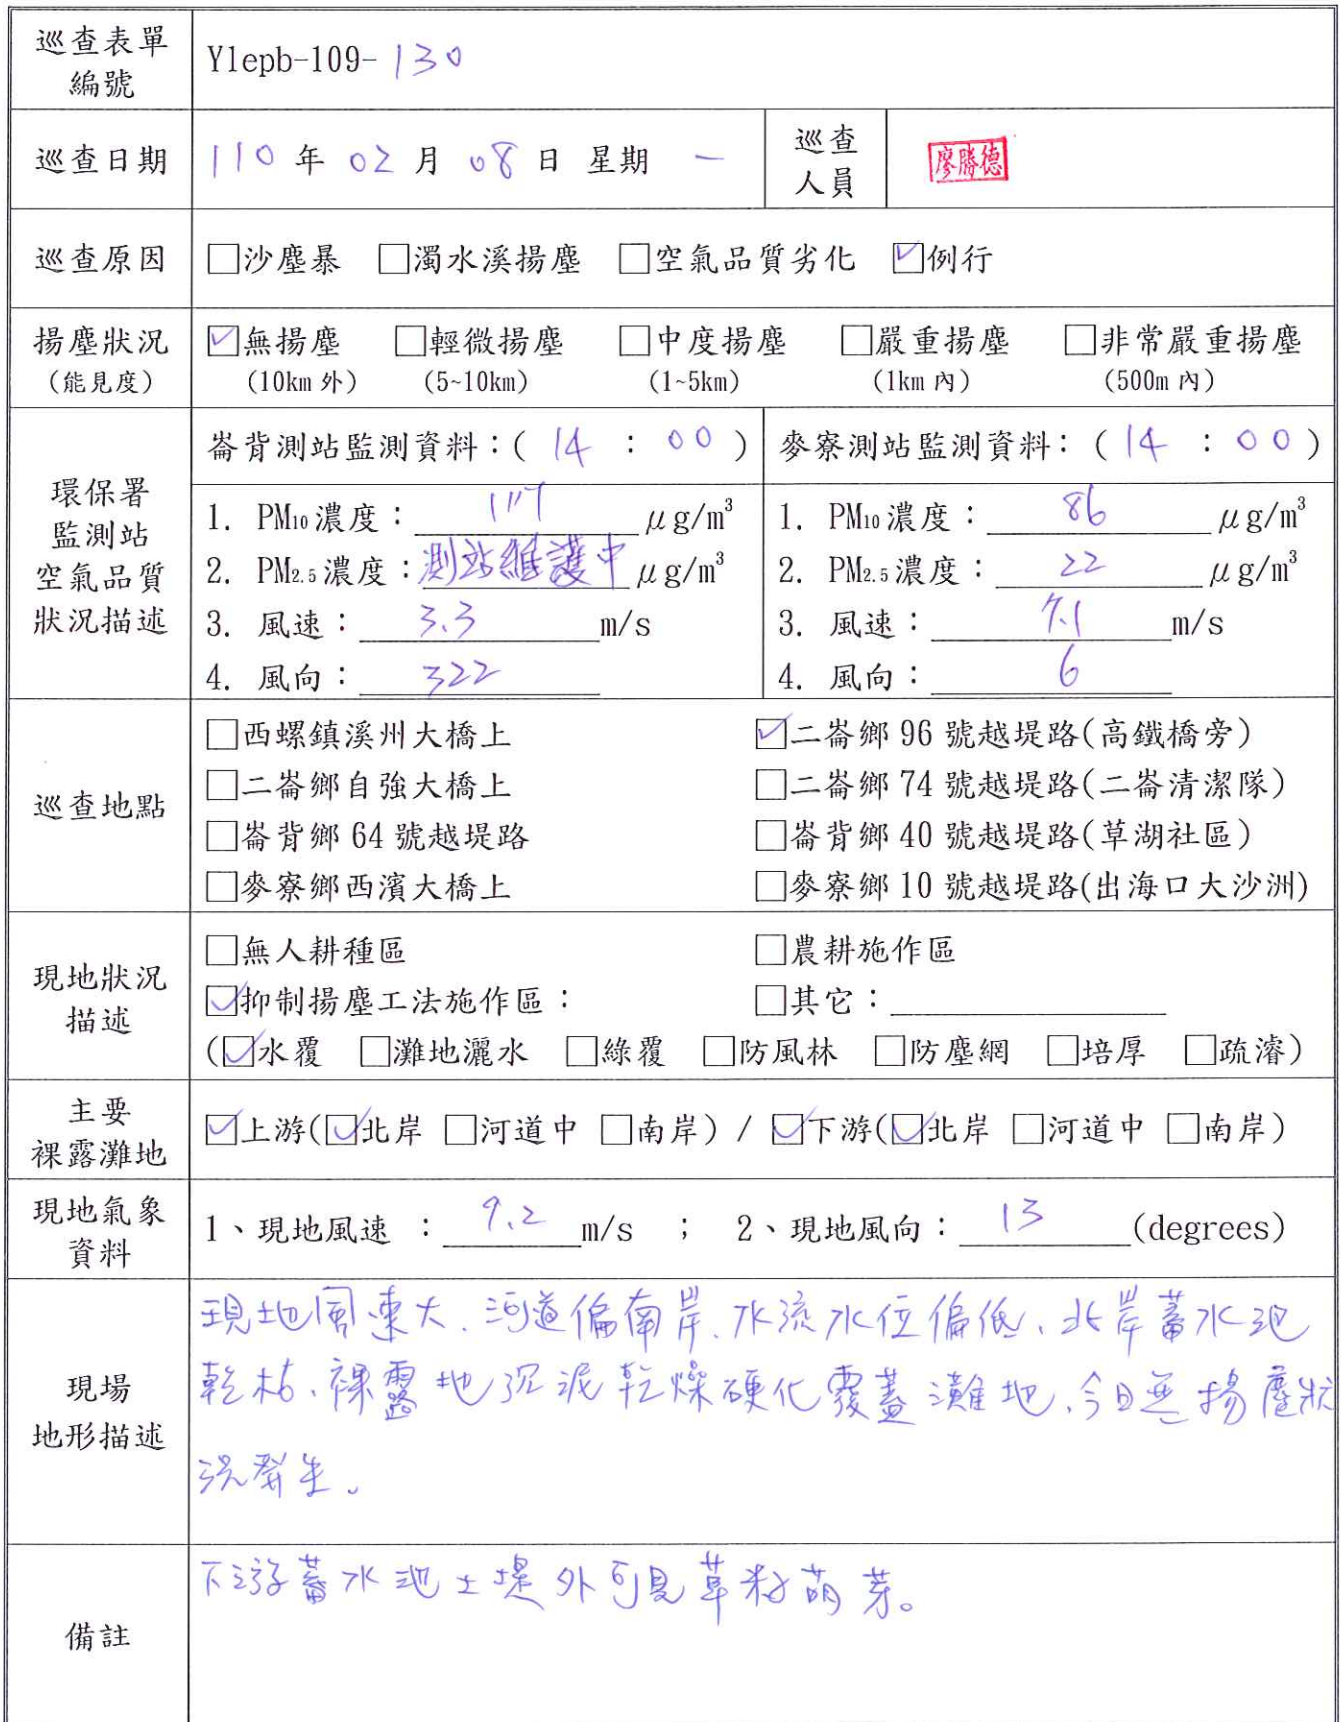 巡查表單
編號
Ylepb-109-130
巡查日期
110 年 02 月 08 日 星期 一
巡查
人員
廖勝德
巡查原因
□沙塵暴 □濁水溪揚塵 □空氣品質劣化 ☑例行
揚塵狀況
(能見度)
☑無揚塵 □輕微揚塵 □中度揚塵 □嚴重揚塵 □非常嚴重揚塵
(10km 外) (5~10km) (1~5km) (1km 內) (500m 內)
環保署
監測站
空氣品質
狀況描述
崙背測站監測資料：( 14 : 00 )
1. PM10 濃度： 117 μg/m³
2. PM2.5 濃度：測站維護中 μg/m³
3. 風速： 3.3 m/s
4. 風向： 322
麥寮測站監測資料：( 14 : 00 )
1. PM10 濃度： 86 μg/m³
2. PM2.5 濃度： 22 μg/m³
3. 風速： 7.1 m/s
4. 風向： 6
巡查地點
□西螺鎮溪州大橋上 ☑二崙鄉 96 號越堤路(高鐵橋旁)
□二崙鄉自強大橋上 □二崙鄉 74 號越堤路(二崙清潔隊)
□崙背鄉 64 號越堤路 □崙背鄉 40 號越堤路(草湖社區)
□麥寮鄉西濱大橋上 □麥寮鄉 10 號越堤路(出海口大沙洲)
現地狀況
描述
□無人耕種區 □農耕施作區
☑抑制揚塵工法施作區： □其它：
(☑水覆 □灘地灑水 □綠覆 □防風林 □防塵網 □培厚 □疏濬)
主要
裸露灘地
☑上游(☑北岸 □河道中 □南岸) / ☑下游(☑北岸 □河道中 □南岸)
現地氣象
資料
1、現地風速 ： 9.2 m/s ； 2、現地風向： 13 (degrees)
現場
地形描述
現地風速大、河道偏南岸、水流水位偏低、北岸蓄水池
乾枯、裸露地沉泥乾燥硬化覆蓋灘地、今日無揚塵狀
況發生。
備註
下游蓄水池土堤外可見草籽萌芽。